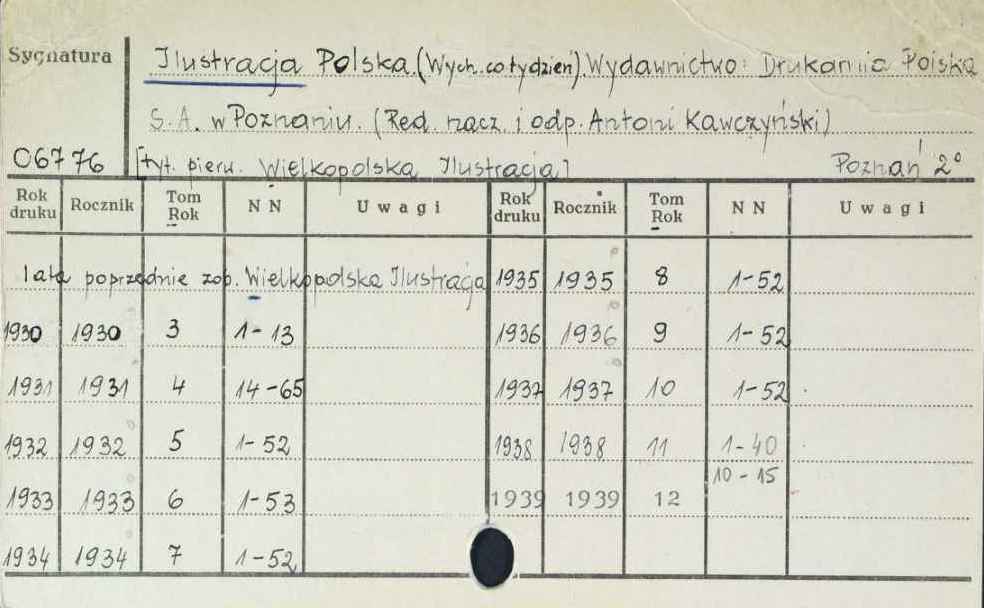 Sygnatura
Ilustracja Polska. (Wych. co tydzień). Wydawnictwo: Drukarnia Polska
S.A. w Poznaniu. (Red. nacz. i odp. Antoni Kawczyński)
06776 [tyt. pierw. Wielkopolska Ilustracja] Poznań 2°
Rok druku Rocznik Tom Rok NN Uwagi Rok druku Rocznik Tom Rok NN Uwagi
lata poprzednie zob. Wielkopolska Ilustracja 1935 1935 8 1-52
1930 1930 3 1-13 1936 1936 9 1-52
1931 1931 4 14-65 1937 1937 10 1-52
1932 1932 5 1-52 1938 1938 11 1-40
1933 1933 6 1-53 1939 1939 12 10-15
1934 1934 7 1-52